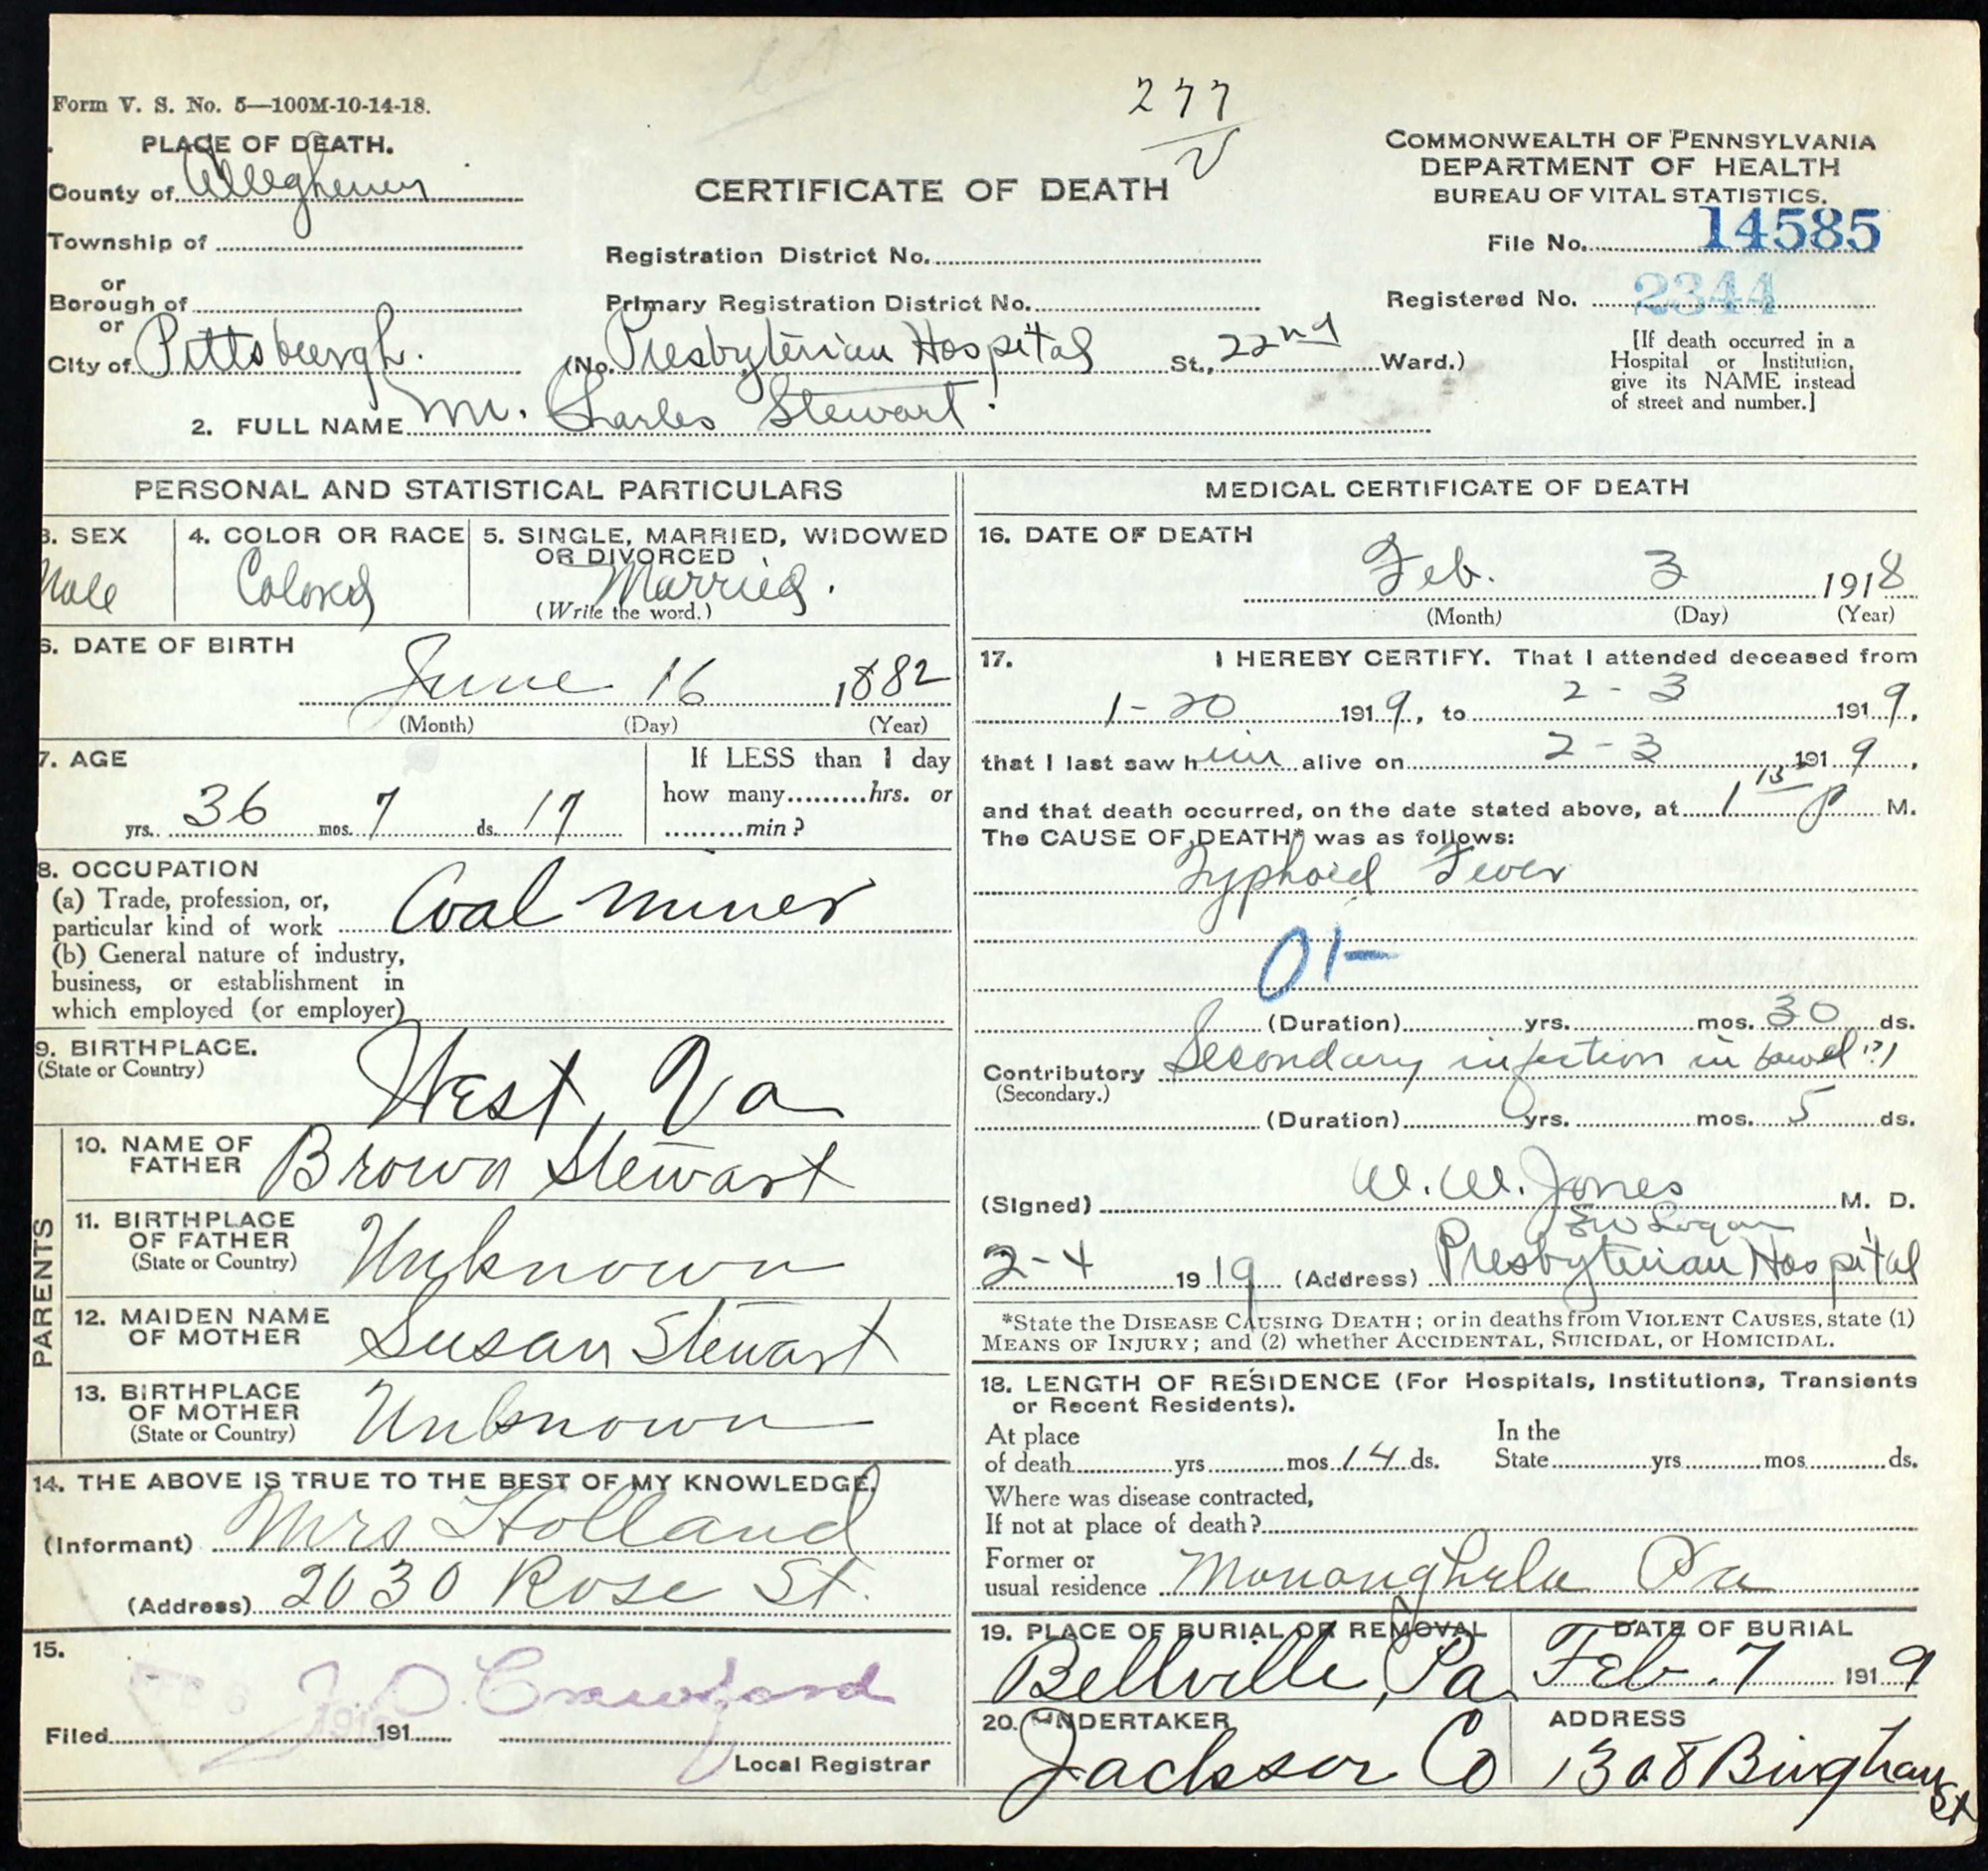 277
Form V. S. No. 5—100M-10-14-18.
PLACE OF DEATH.
County of Allegheny
Township of
or
Borough of
or
City of Pittsburgh.
CERTIFICATE OF DEATH
Registration District No.
Primary Registration District No.
(No. Presbyterian Hospital St., 22nd Ward.)
COMMONWEALTH OF PENNSYLVANIA
DEPARTMENT OF HEALTH
BUREAU OF VITAL STATISTICS.
File No. 14585
Registered No. 2344
[If death occurred in a
Hospital or Institution,
give its NAME instead
of street and number.]
2. FULL NAME Mr. Charles Stewart.
PERSONAL AND STATISTICAL PARTICULARS
3. SEX
Male
4. COLOR OR RACE
Colored
5. SINGLE, MARRIED, WIDOWED
OR DIVORCED
Married.
(Write the word.)
6. DATE OF BIRTH
June 16 1882
(Month) (Day) (Year)
7. AGE
36 yrs. 7 mos. 17 ds.
If LESS than 1 day
how many.........hrs. or
.........min?
8. OCCUPATION
(a) Trade, profession, or,
particular kind of work Coal miner
(b) General nature of industry,
business, or establishment in
which employed (or employer)
9. BIRTHPLACE.
(State or Country)
West, Va
PARENTS
10. NAME OF
FATHER
Brown Stewart
11. BIRTHPLACE
OF FATHER
(State or Country)
Unknown
12. MAIDEN NAME
OF MOTHER
Susan Stewart
13. BIRTHPLACE
OF MOTHER
(State or Country)
Unknown
14. THE ABOVE IS TRUE TO THE BEST OF MY KNOWLEDGE.
(Informant) Mrs Holland
(Address) 2030 Rose St.
15.
Filed 191
J. O. Crawford
Local Registrar
MEDICAL CERTIFICATE OF DEATH
16. DATE OF DEATH
Feb. 3 1918
(Month) (Day) (Year)
17. I HEREBY CERTIFY. That I attended deceased from
1-20 1919, to 2-3 1919,
that I last saw him alive on 2-3 1919,
and that death occurred, on the date stated above, at 1 15 P M.
The CAUSE OF DEATH* was as follows:
Typhoid Fever
01-
(Duration) yrs. mos. 30 ds.
Contributory Secondary infection in bowel (?)
(Secondary.)
(Duration) yrs. mos. 5 ds.
(Signed) W. W. Jones M. D.
EW Logan
2-4 1919 (Address) Presbyterian Hospital
*State the DISEASE CAUSING DEATH; or in deaths from VIOLENT CAUSES, state (1)
MEANS OF INJURY; and (2) whether ACCIDENTAL, SUICIDAL, or HOMICIDAL.
18. LENGTH OF RESIDENCE (For Hospitals, Institutions, Transients
or Recent Residents).
At place
of death yrs mos 14 ds.
In the
State yrs mos ds.
Where was disease contracted,
If not at place of death?
Former or
usual residence Mononghela Pa
19. PLACE OF BURIAL OR REMOVAL
Bellville, Pa
DATE OF BURIAL
Feb. 7 1919
20. UNDERTAKER
Jackson Co
ADDRESS
1308 Bingham
St